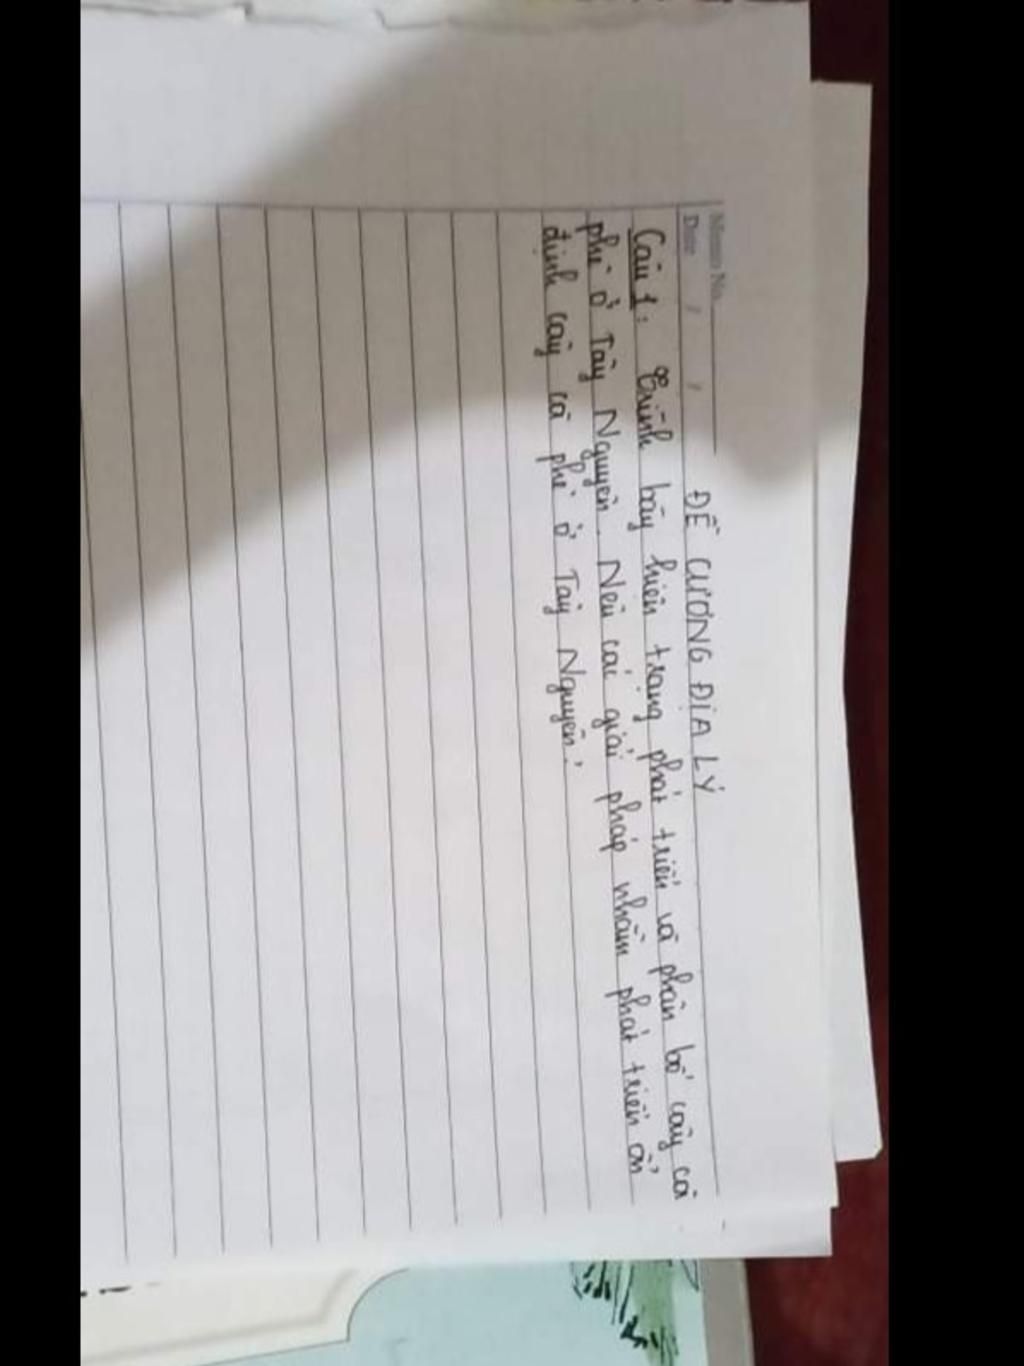 Memo No.
Date / /
ĐỀ CƯƠNG ĐỊA LÝ
Câu 1: Trình bày hiện trạng phát triển và phân bố cây cà
phê ở Tây Nguyên. Nêu các giải pháp nhằm phát triển ổn
định cây cà phê ở Tây Nguyên.